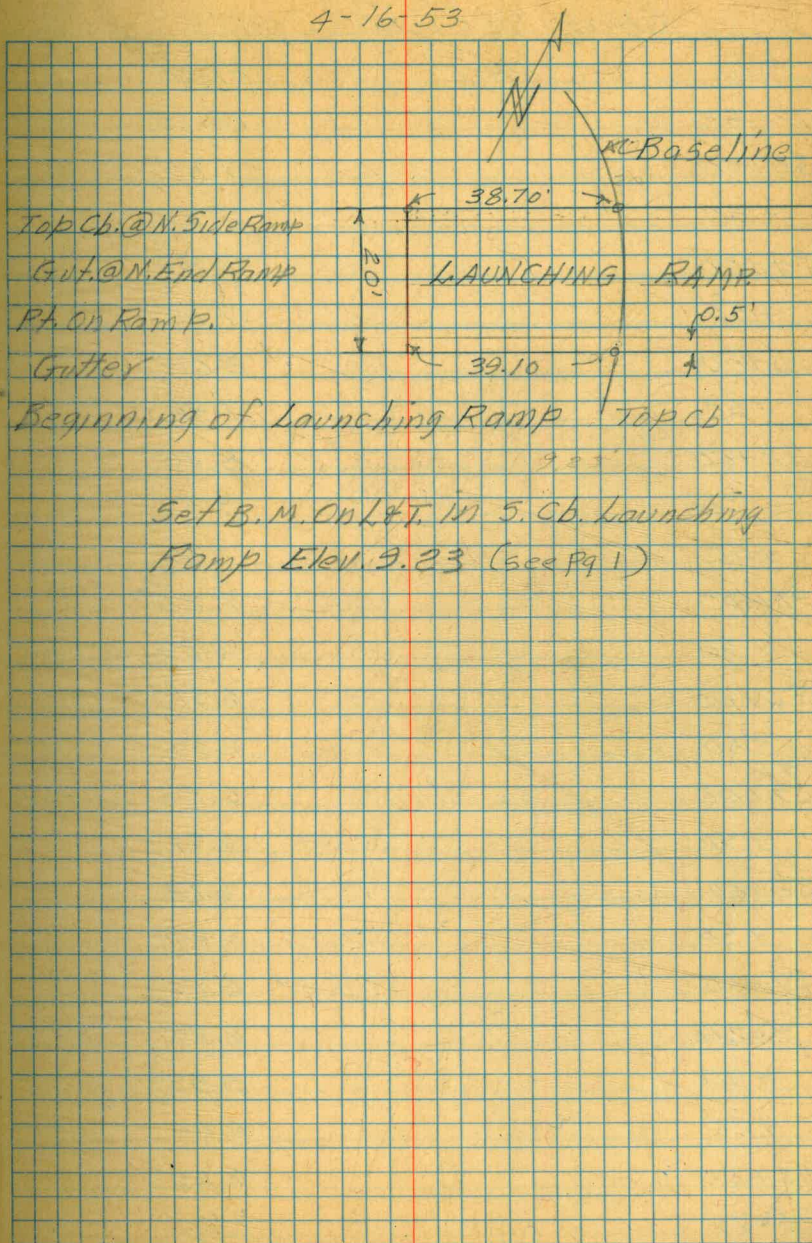 4-16-53
N
Baseline
38.70'
Top Cb. @ N. Side Ramp
Gut. @ N. End Ramp
20'
LAUNCHING RAMP
Pt. On Ramp.
0.5'
Gutter
39.10
Beginning of Launching Ramp Top Cb
Set B.M. On L&T. in S. Cb. Launching
Ramp Elev. 9.23 (see pg 1)